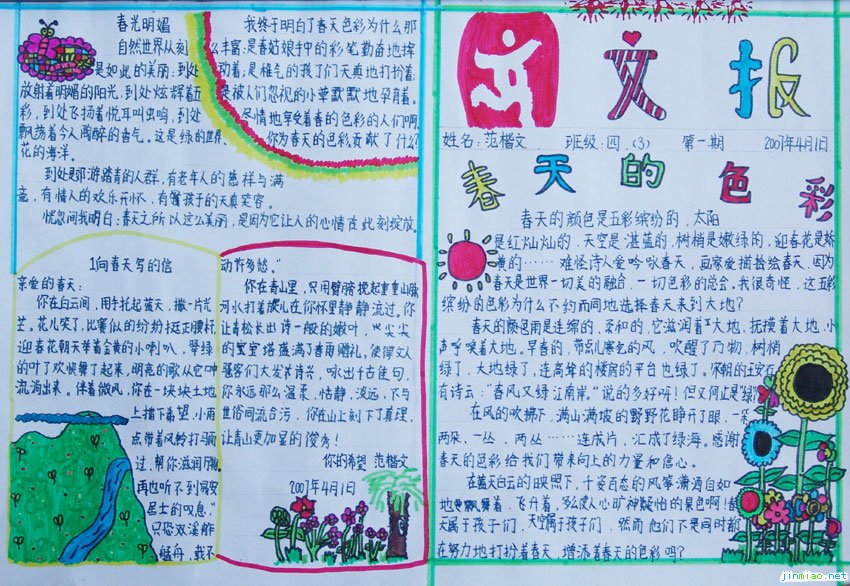 春光明媚
自然世界从刻
是如此的美丽,到处
放射着明媚的阳光,到处炫辉着五
彩,到处飞扬着悦耳虫鸣,到处
飘荡着令人陶醉的香气。这是绿的世界,
花的海洋。
到处是郊游踏青的人群,有老年人的慈祥与满
有情人的欢乐开怀,有着孩子的天真笑容。
恍忽间我明白:春天之所以这么美丽,是因为它让人的心情在此刻绽放。
我终于明白了春天色彩为什么那
么丰富:是春姑娘手中的彩笔勤奋地挥
动着;是稚气的孩子们天真地打扮着;
是被人们忽视的小草默默地孕育着。
尽情地享受着春的色彩的人们啊,
你为春天的色彩贡献了什么?
1向春天写的信
亲爱的春天:
你在白云间,用手托起蓝天,撒一片光
芒。花儿笑了,比赛似的纷纷挺正腰杆
迎春花朝天举着金黄的小喇叭,翠绿
的叶了欢快舞了起来,明亮的歌从它中
流淌出来。伴着微风,你在一块块土地
上播下希望,小雨
点带着风铃打马而
过,帮你滋润万物
再也听不到易安
居士的叹息。"
只恐双溪舴
艋舟,载不
动许多愁。"
你在青山里,只用臂膀挽起重重山脉
河水打着旋儿在你怀里静静流过。你
让青松长出诗一般的嫩叶,
的宝宝塔盛满了春雨赠礼,使得文人
骚客们大发诗兴,咏出千古佳句,
你永远那么温柔,恬静,淡远,不与
世俗同流合污,你在山上刻下了真理,
让青山更加显的俊秀!
你的希望 范楷文
2007年4月1日
文报
姓名:范楷文 班级:四.(3) 第一期 2007年4月1日
春天的色彩
春天的颜色是五彩缤纷的,太阳
是红灿灿的,天空是湛蓝的,树梢是嫩绿的,迎春花是娇
黄的……难怪诗人爱吟咏春天,画家爱描摹绘春天,因为
春天是世界一切美的融合,一切色彩的总会。我很奇怪,这五彩
缤纷的色彩为什么不约而同地选择春天来到大地?
春天的颜色雨是连绵的、柔和的,它滋润着大地,抚摸着大地,小
声呼唤着大地。早春的,带点儿寒气的风,吹醒了万物,树梢
绿了,大地绿了,连高耸的楼房的平台也绿了。宋朝的王安石
有诗云:"春风又绿江南岸。"说的多好听!但又何止是"绿"
在风的吹拂下,满山满坡的野野花睁开了眼,一朵
两朵,一丛、两丛……连成片,汇成了绿海。感谢
春天的色彩给我们带来向上的力量和信心。
在蓝天白云的映照下,千姿百态的风筝潇洒自如
地飘舞着、飞升着,多么使人心旷神怡的景色啊!春
天属于孩子们,天空属于孩子们,然而他们不是同时都
在努力地打扮着春天,增添着春天的色彩吗?
jinmiao.net